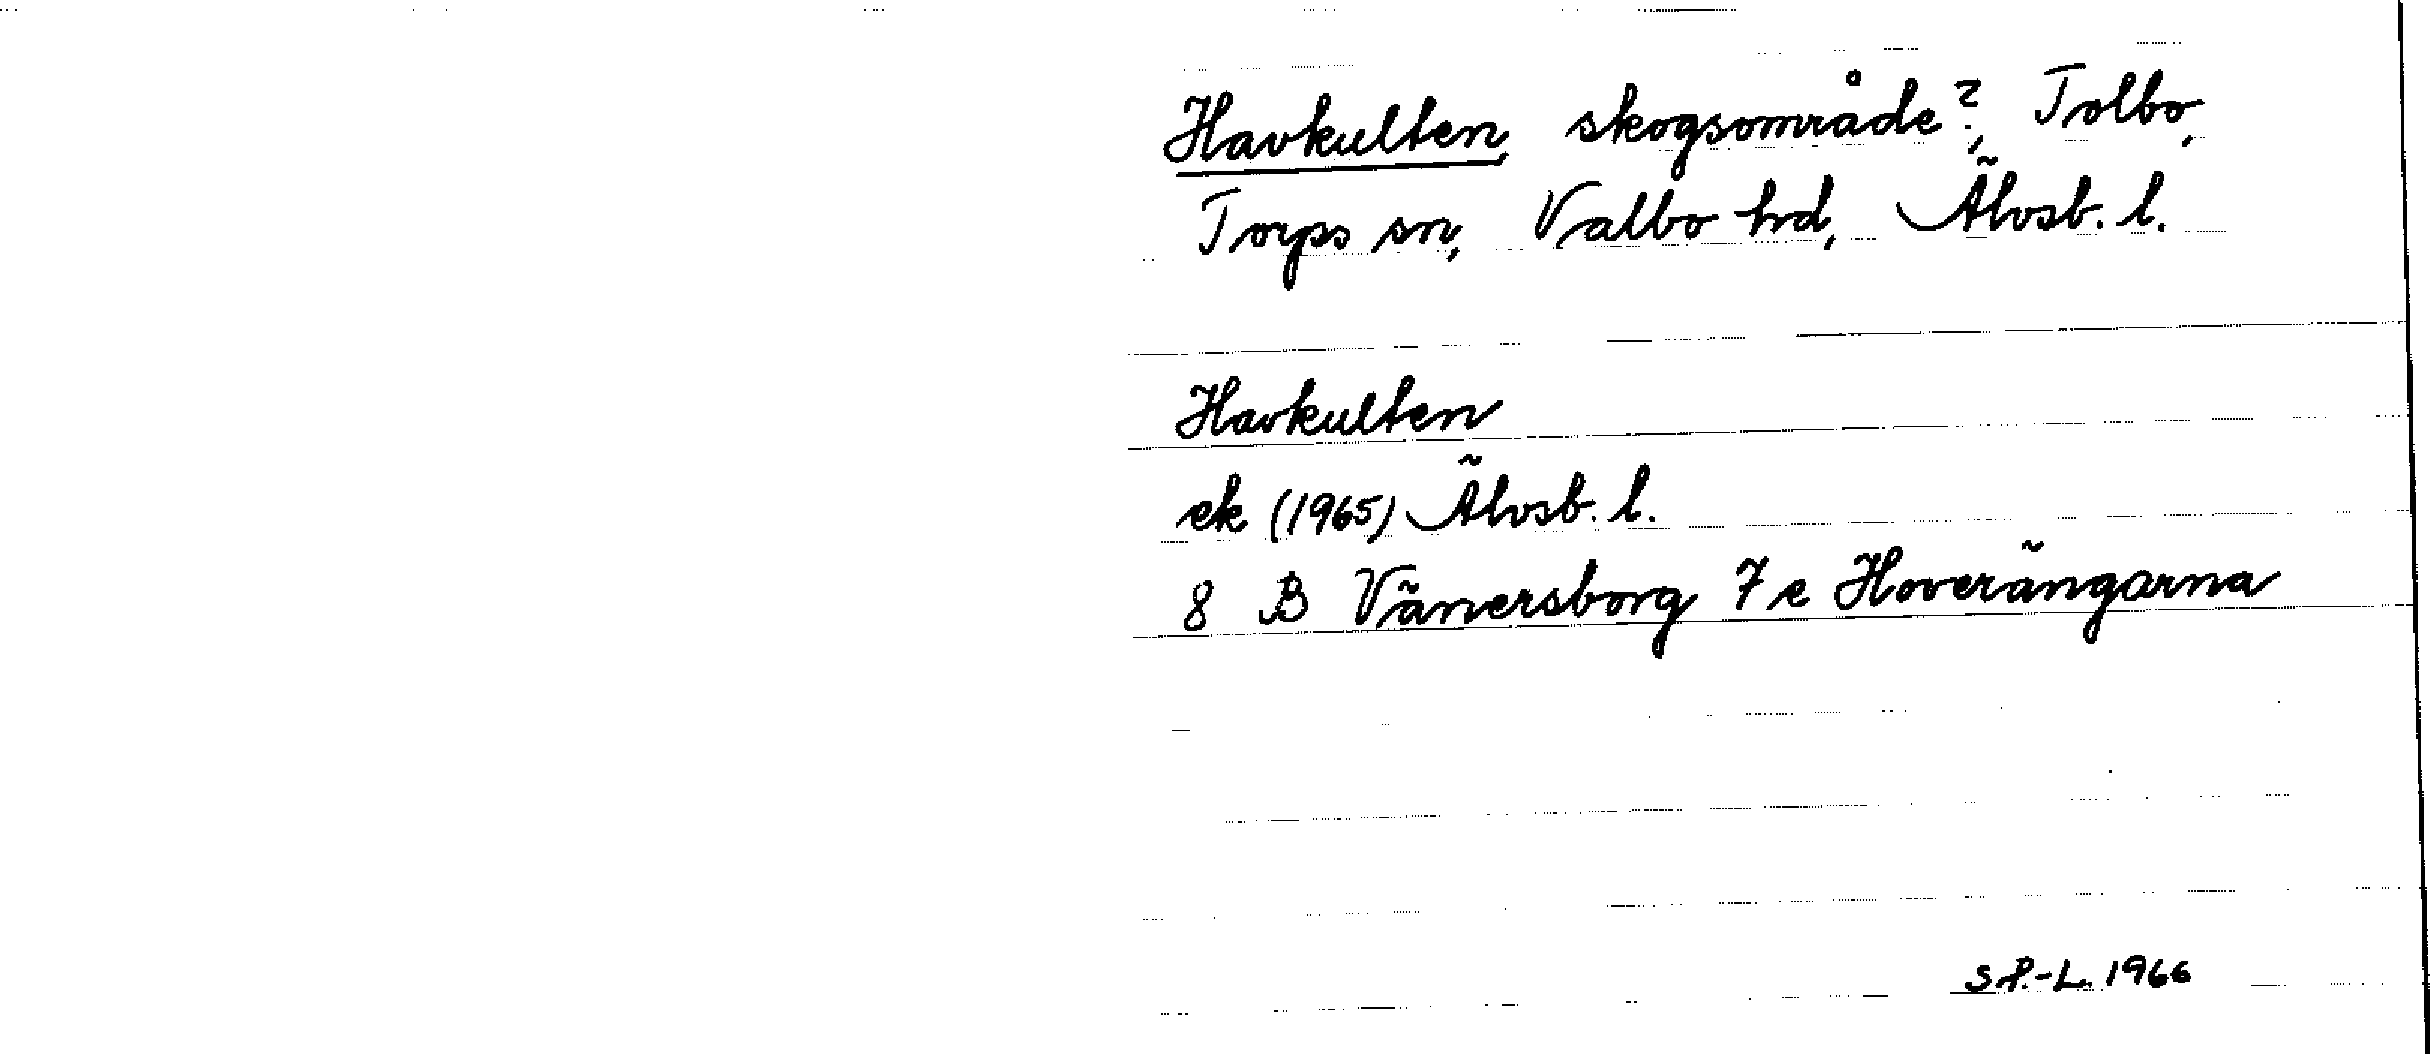 Havkulten, skogsområde?, Tolbo,
Torps sn, Valbo hd, Älvsb. l.
Havkulten
ek (1965) Älvsb. l.
8 B Vänersborg 7 e Hoverängarna
S P.-L. 1966